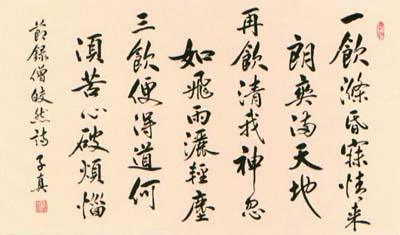 一飲滌昏寐情来
朗爽滿天地
再飲清我神忽
如飛雨灑輕塵
三飲便得道何
須苦心破煩惱
節錄僧皎然詩 子真